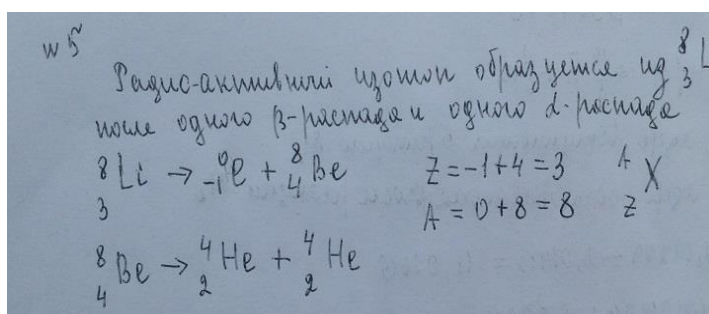 №5
Радио-активный изотоп образуется из ⁸₃L
после одного β-распада и одного α-распада
⁸₃Li → ⁰₋₁e + ⁸₄Be Z = -1+4 = 3 ᴬ_Z X
A = 0+8 = 8
⁸₄Be → ⁴₂He + ⁴₂He